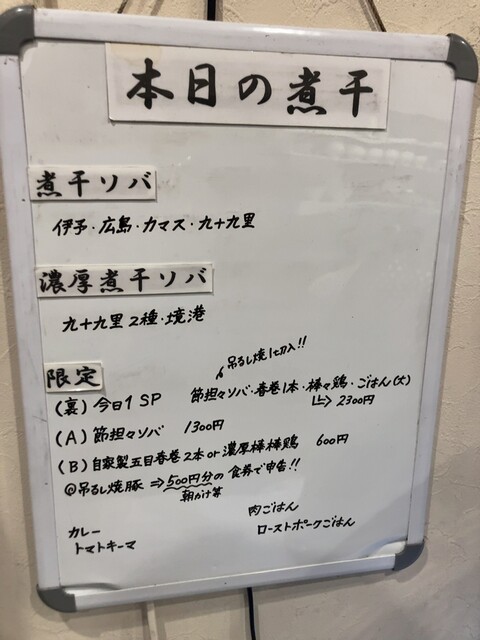 本日の煮干
煮干ソバ
伊予・広島・カマス・九十九里
濃厚煮干ソバ
九十九里2種・境港
限定
吊るし焼1切入!!
(裏) 今日1 SP 節担々ソバ・春巻1本・棒々鶏・ごはん(大)
2300円
(A) 節担々ソバ 1300円
(B) 自家製五目春巻2本 or 濃厚棒棒鶏 600円
@吊るし焼豚 ⇒ 500円分の食券で申告!!
朝かけ丼
カレー
トマトキーマ
肉ごはん
ローストポークごはん